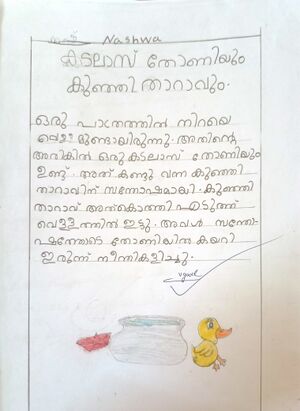 Nashwa
കടലാസ് തോണിയും
കുഞ്ഞി താറാവും.
ഒരു പാത്രത്തിൽ നിറയെ
വെള്ളമുണ്ടായിരുന്നു. അതിന്റെ
അരികിൽ ഒരു കടലാസ് തോണിയും
ഉണ്ട്. അത് കണ്ടു വന്ന കുഞ്ഞി
താറാവിന് സന്തോഷമായി. കുഞ്ഞി
താറാവ് അത് കൊത്തി എടുത്ത്
വെള്ളത്തിൽ ഇട്ടു. അവൾ സന്തോ
ഷത്തോടെ തോണിയിൽ കയറി
ഇരുന്ന് നീന്തികളിച്ചു.